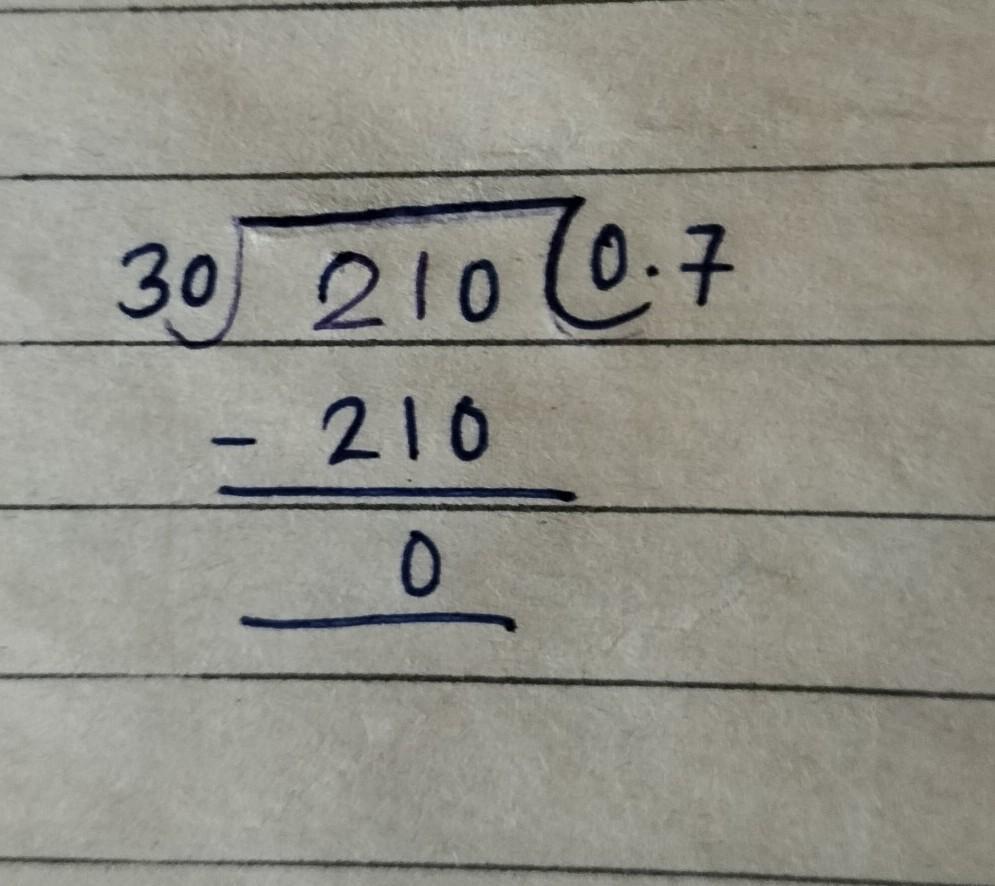 30) 210 (0.7
- 210
0